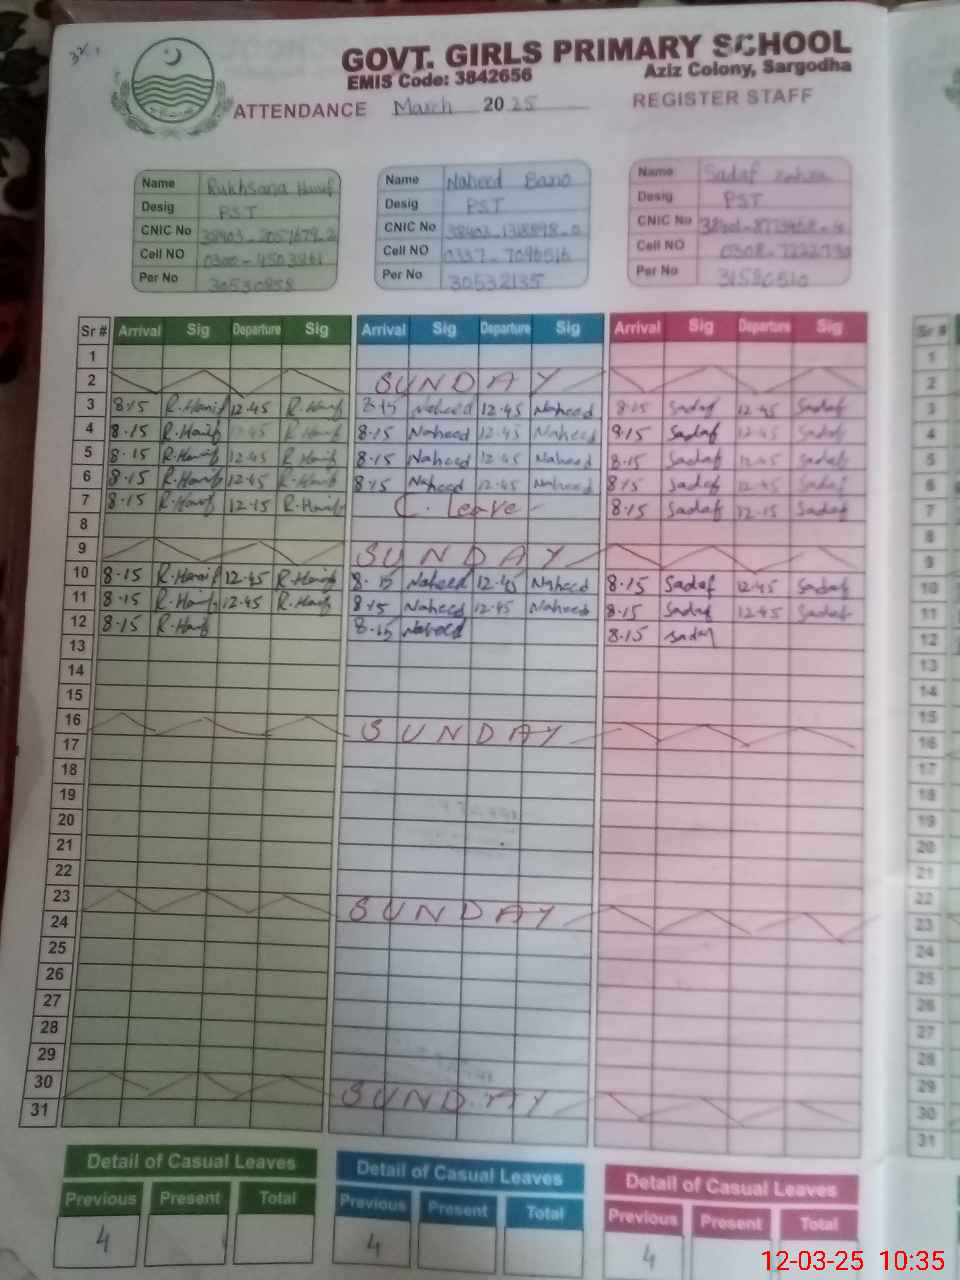 GOVT. GIRLS PRIMARY SCHOOL
EMIS Code: 3842656 Aziz Colony, Sargodha
ATTENDANCE March 2025 REGISTER STAFF
Name Rukhsana Hanif Name Naheed Bano Name Sadaf
Desig PST Desig PST Desig PST
CNIC No CNIC No CNIC No
Cell NO Cell NO Cell NO
Per No 30530858 Per No 30532135 Per No 31580510
Sr # Arrival Sig Departure Sig Arrival Sig Departure Sig Arrival Sig Departure Sig Sr #
1 1
2 SUNDAY 2
3 8.15 R.Hanif 12.45 R.Hanif 8.15 Naheed 12.45 Naheed 8.15 Sadaf 12.45 Sadaf 3
4 8.15 R.Hanif 12.45 R.Hanif 8.15 Naheed 12.45 Naheed 8.15 Sadaf 12.45 Sadaf 4
5 8.15 R.Hanif 12.45 R.Hanif 8.15 Naheed 12.45 Naheed 8.15 Sadaf 12.45 Sadaf 5
6 8.15 R.Hanif 12.45 R.Hanif 8.15 Naheed 12.45 Naheed 8.15 Sadaf 12.45 Sadaf 6
7 8.15 R.Hanif 12.15 R.Hanif C. Leave 8.15 Sadaf 12.15 Sadaf 7
8 8
9 SUNDAY 9
10 8.15 R.Hanif 12.45 R.Hanif 8.15 Naheed 12.45 Naheed 8.15 Sadaf 12.45 Sadaf 10
11 8.15 R.Hanif 12.45 R.Hanif 8.15 Naheed 12.45 Naheed 8.15 Sadaf 12.45 Sadaf 11
12 8.15 R.Hanif 8.15 Naheed 8.15 Sadaf 12
13 13
14 14
15 15
16 SUNDAY 16
17 17
18 18
19 19
20 20
21 21
22 22
23 SUNDAY 23
24 24
25 25
26 26
27 27
28 28
29 29
30 SUNDAY 30
31 31
Detail of Casual Leaves Detail of Casual Leaves Detail of Casual Leaves
Previous Present Total Previous Present Total Previous Present Total
4 4 4
12-03-25 10:35